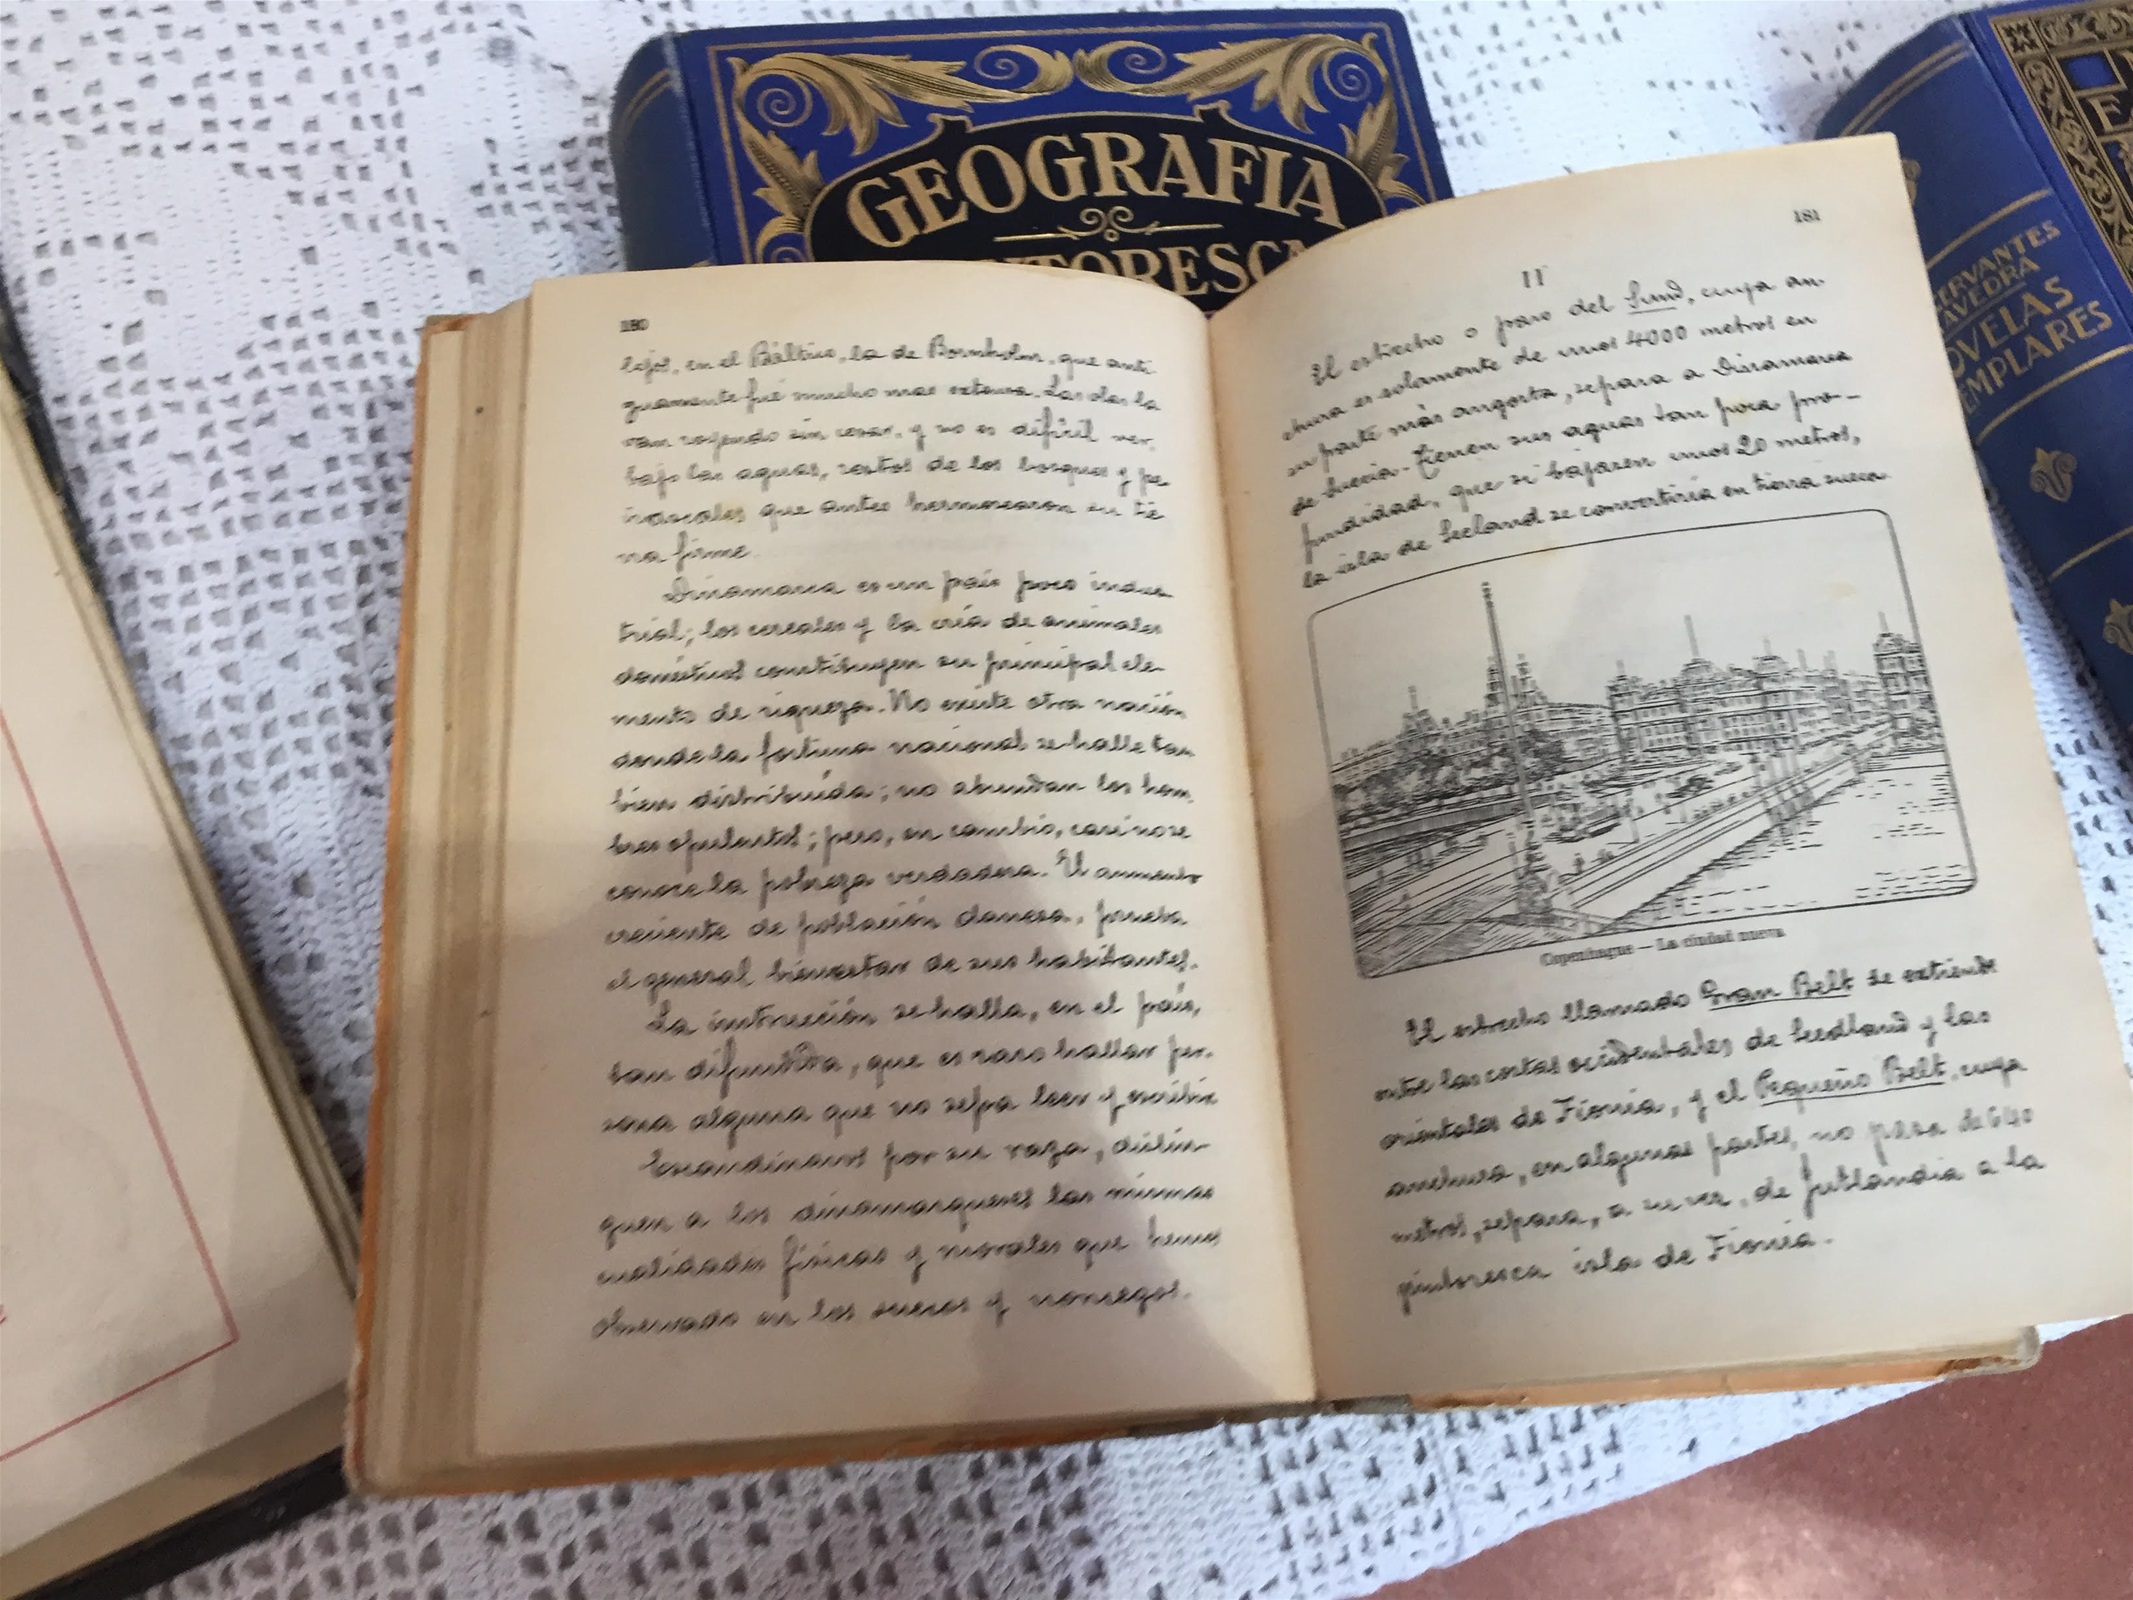 GEOGRAFIA
PINTORESCA
CERVANTES
SAAVEDRA
NOVELAS
EJEMPLARES
180
lejos, en el Báltico, la de Bornholm, que anti-
guamente fué mucho mas extensa. Las olas la
van royendo sin cesar, y no es difícil ver,
bajo las aguas, restos de los bosques y pe-
ñascales que antes hermosearon su tie-
rra firme.
Dinamarca es un país poco indus-
trial; los cereales y la cría de animales
domésticos constituyen su principal ele-
mento de riqueza. No existe otra nación
donde la fortuna nacional se halle tan
bien distribuída; no abundan los hom-
bres opulentos; pero, en cambio, casi no se
conoce la pobreza verdadera. El aumento
creciente de población danesa, prueba
el general bienestar de sus habitantes.
La instrucción se halla, en el país,
tan difundida, que es raro hallar per-
sona alguna que no sepa leer y escribir.
Escandinavos por su raza, distin-
guen a los dinamarqueses las mismas
cualidades físicas y morales que hemos
observado en los suecos y noruegos.
181
II
El estrecho o paso del Sund, cuya an-
chura es solamente de unos 4000 metros en
su parte más angosta, separa a Dinamarca
de Suecia. Tienen sus aguas tan poca pro-
fundidad, que si bajasen unos 20 metros,
la isla de Seeland se convertiría en tierra sueca.
Copenhague — La ciudad nueva
El estrecho llamado Gran Belt se extiende
entre las costas occidentales de Seedland y las
orientales de Fionia, y el Pequeño Belt, cuya
anchura, en algunas partes, no pasa de 640
metros, separa, a su vez, de Jutlandia a la
pintoresca isla de Fionia.